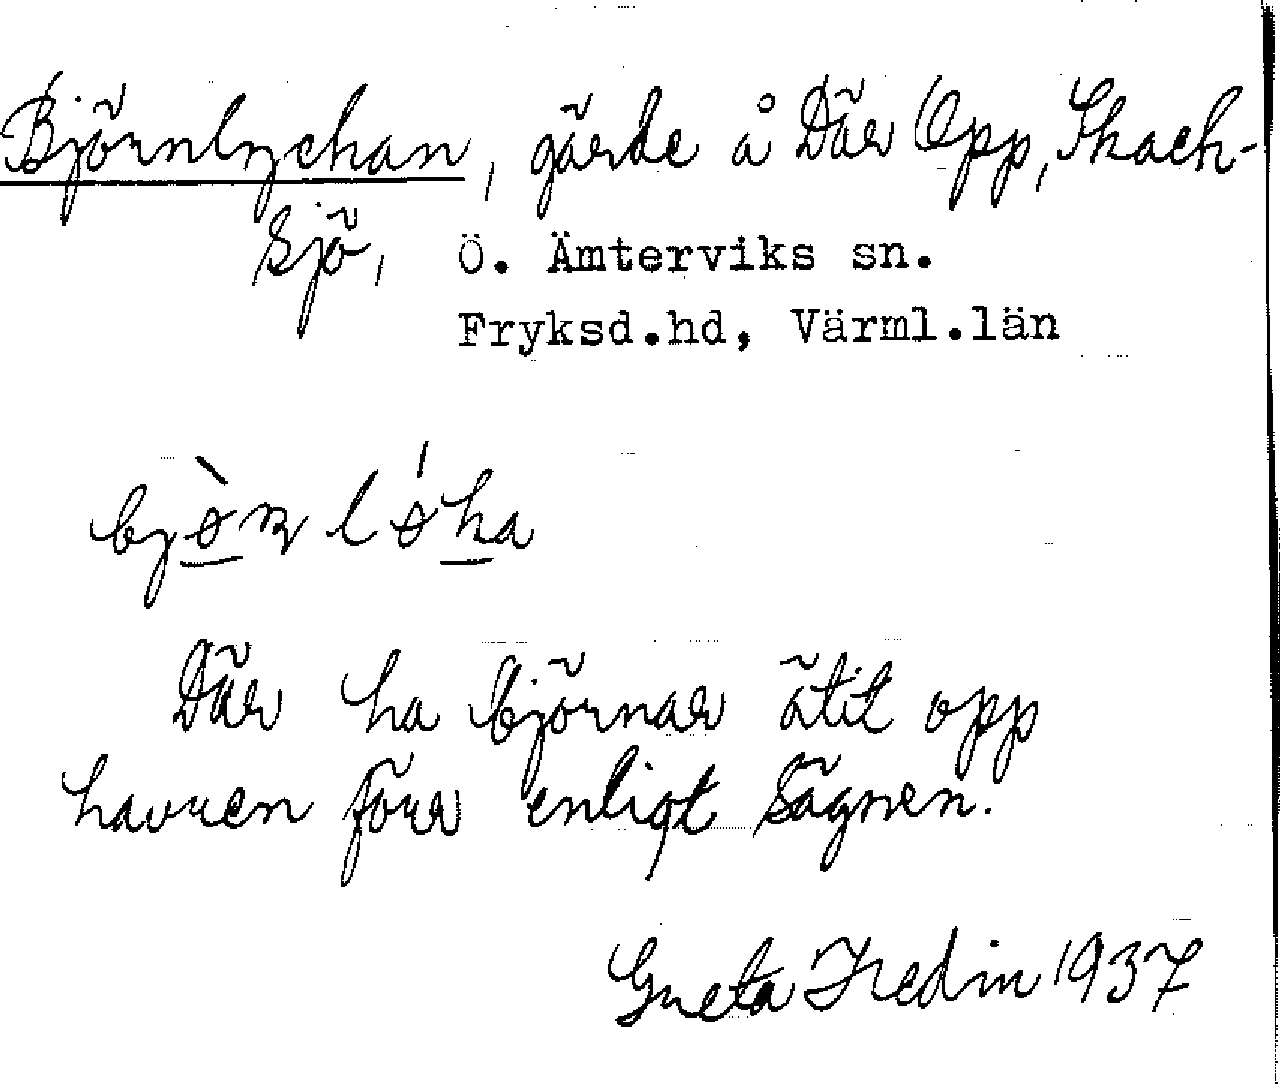 Björnlyckan, gärde å Där Opp, Skack-
sjö, Ö. Ämterviks sn.
Fryksd.hd, Värml.län
Där ha björnar ätit opp
havren förr enligt sägnen.
Greta Fredin 1937